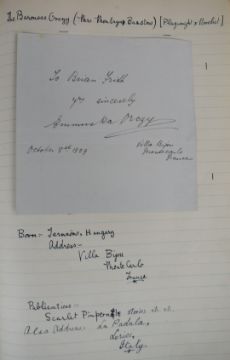 The Baroness Orczy (Mrs Montague Barstow) [Playwright & Novelist]
To Brian Frith
yrs sincerely
Emmuska Orczy
October 8th 1929
Villa Bijou
Monte Carlo
France
Born - Tarnaörs, Hungary
Address -
Villa Bijou
Monte Carlo
France
Publications -
Scarlet Pimpernel stories etc. etc.
Also Address: La Padula,
Lerici,
Italy.